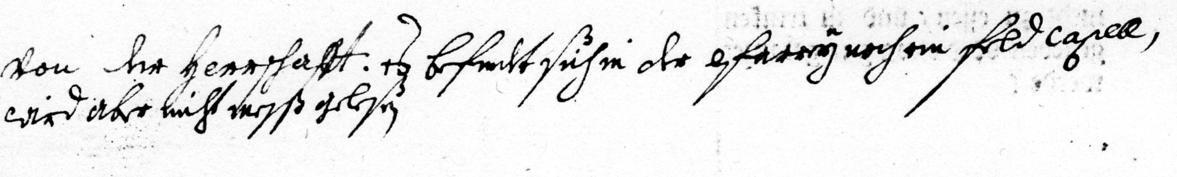 von der Herrschafft. eß befindt sich in der pfarrÿ noch ein feld capell,
wird aber nicht mess gelesen